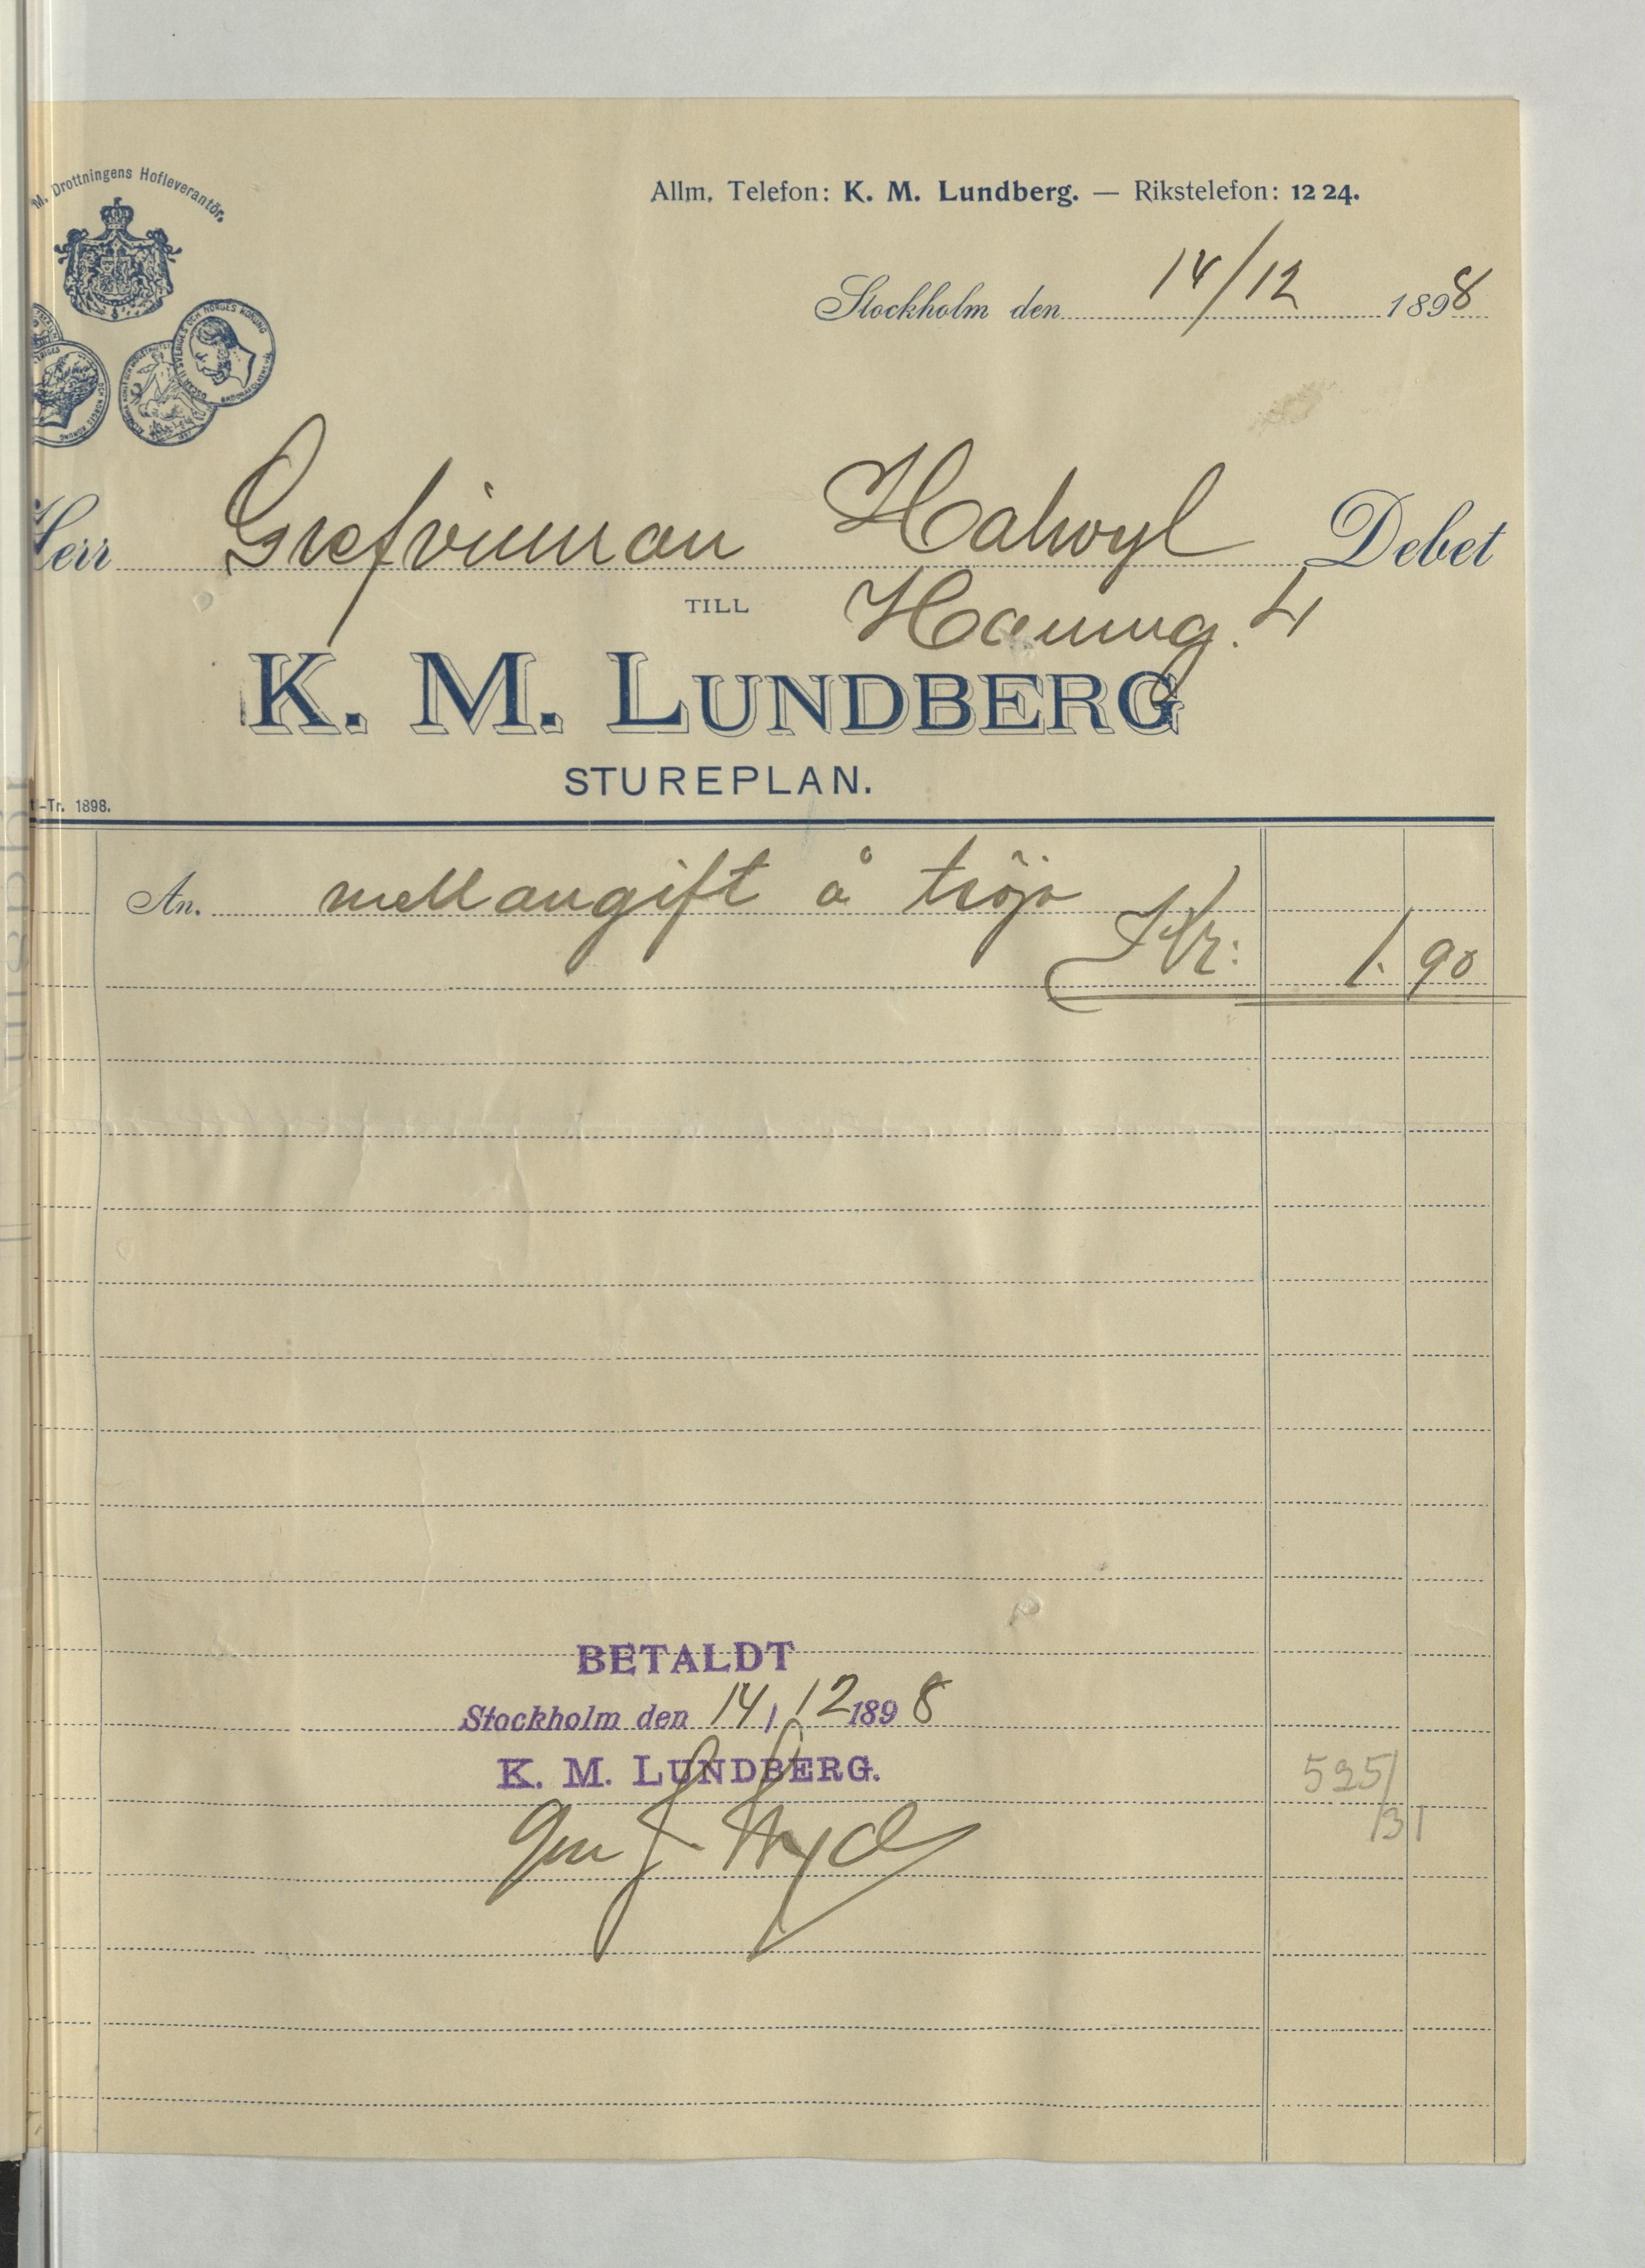 M. Drottningens Hofleverantör.
Allm. Telefon: K. M. Lundberg. — Rikstelefon: 12 24.
Stockholm den 14/12 1898
Herr Grefvinnan Halwyl Debet
TILL Hamng. 4
K. M. LUNDBERG
STUREPLAN.
-Tr. 1898.
An. mellangift å tröja
Kr: 1. 90
BETALDT
Stockholm den 14/12 1898
K. M. LUNDBERG.
525/
31